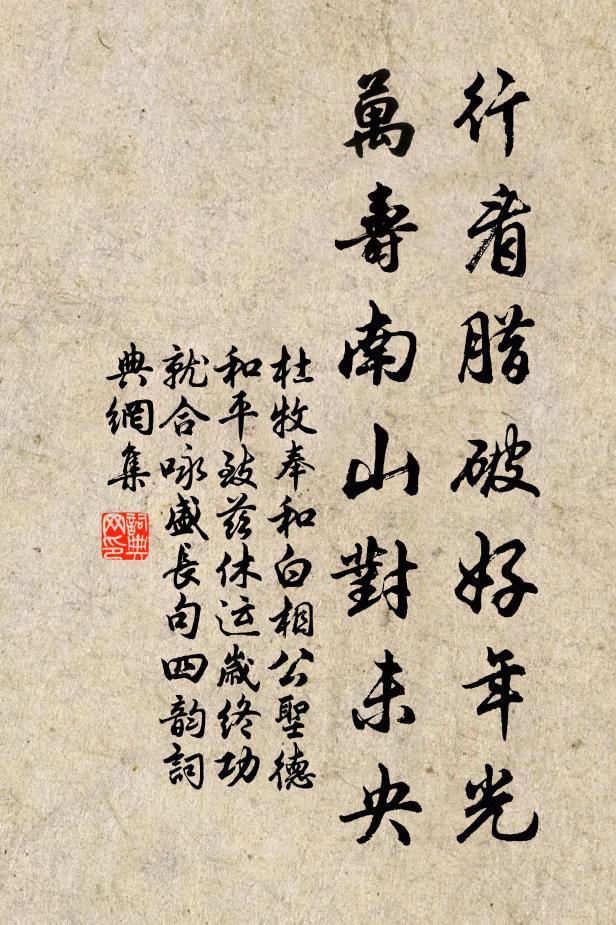 行看腊破好年光
萬壽南山對未央
杜牧奉和白相公聖德
和平致茲休运歲终功
就合咏盛長句四韵詞
典網集
詞典
网印